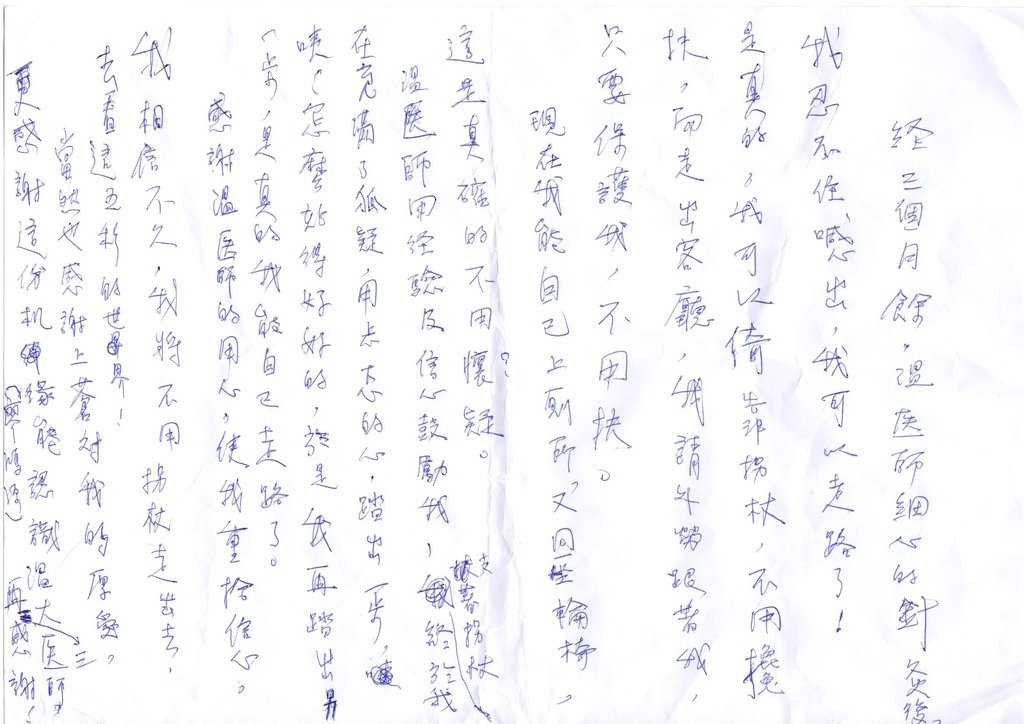 経三個月餘，溫医師細心的針灸後
我忍不住喊出，我可以走路了！
是真的，我可以倚靠拐杖，不用攙
扶，而走出客廳，我請外勞跟著我，
只要保護我，不用扶。
現在我能自己上廁所，又回坐輪椅，
這是真確的不用懷疑。
溫医師用経驗及信心鼓勵我，終於我
支著拐杖
在充滿了狐疑，用忐忑的心，踏出一步，
咦，怎麼站得好好的，於是我再踏出另
一步，是真的我能自己走路了。
感謝溫医師的用心，使我重拾信心。
我相信不久，我將不用拐杖走出去，
去看這五彩的世界！
當然也感謝上蒼對我的厚愛，
更感謝這份机緣能認識溫大医師，
再三感謝！